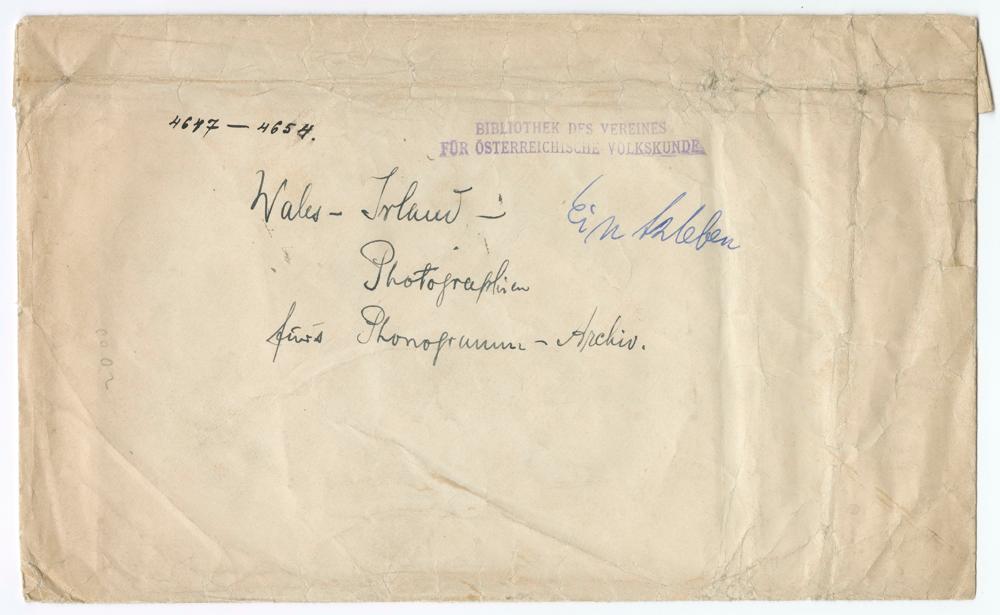 4647 — 4654.
BIBLIOTHEK DES VEREINES
FÜR ÖSTERREICHISCHE VOLKSKUNDE.
Wales – Irland –
Photographien
fürs Phonogramm – Archiv.